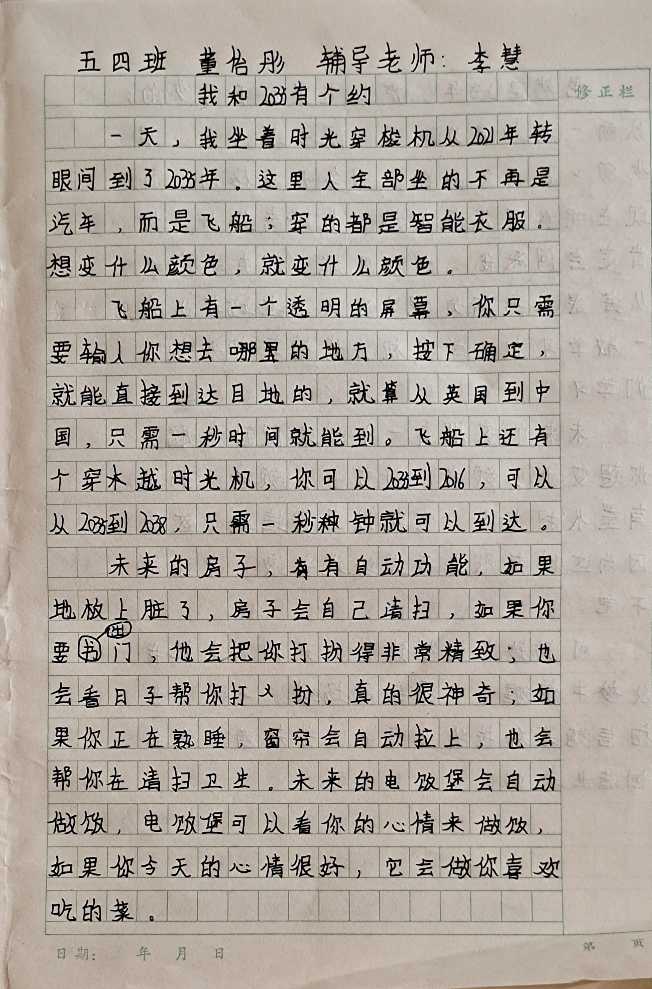 五四班 董怡彤 辅导老师：李慧
我和2035有个约
修正栏
一天，我坐着时光穿梭机从2021年转
眼间到了2035年。这里人全部坐的不再是
汽车，而是飞船；穿的都是智能衣服。
想变什么颜色，就变什么颜色。
飞船上有一个透明的屏幕，你只需
要输入你想去哪里的地方，按下确定，
就能直接到达目地的，就算从英国到中
国，只需一秒时间就能到。飞船上还有
个穿越时光机，你可以2035到2016，可以
从2035到2038，只需一秒种钟就可以到达。
未来的房子，有有自动功能，如果
地放上脏了，房子会自己请扫，如果你
要出门，他会把你打扮得非常精致；也
会看日子帮你打扮，真的很神奇；如
果你正在熟睡，窗帘会自动拉上，也会
帮你在请扫卫生。未来的电饭堡会自动
做饭，电饭堡可以看你的心情来做饭，
如果你今天的心情很好，它会做你喜欢
吃的菜。
日期： 年 月 日
第 页